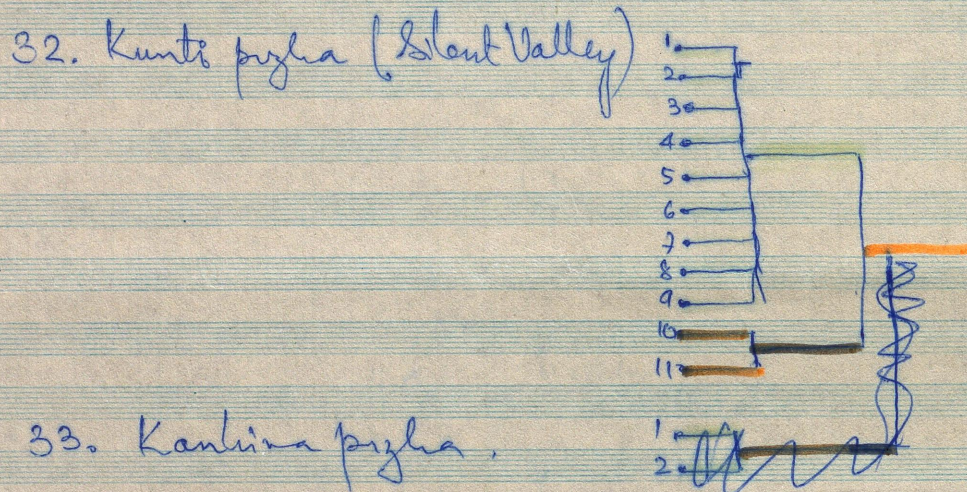 32. Kunti puzha (Silent Valley)
1
2
3
4
5
6
7
8
9
10
11
33. Kanhira puzha.
1
2